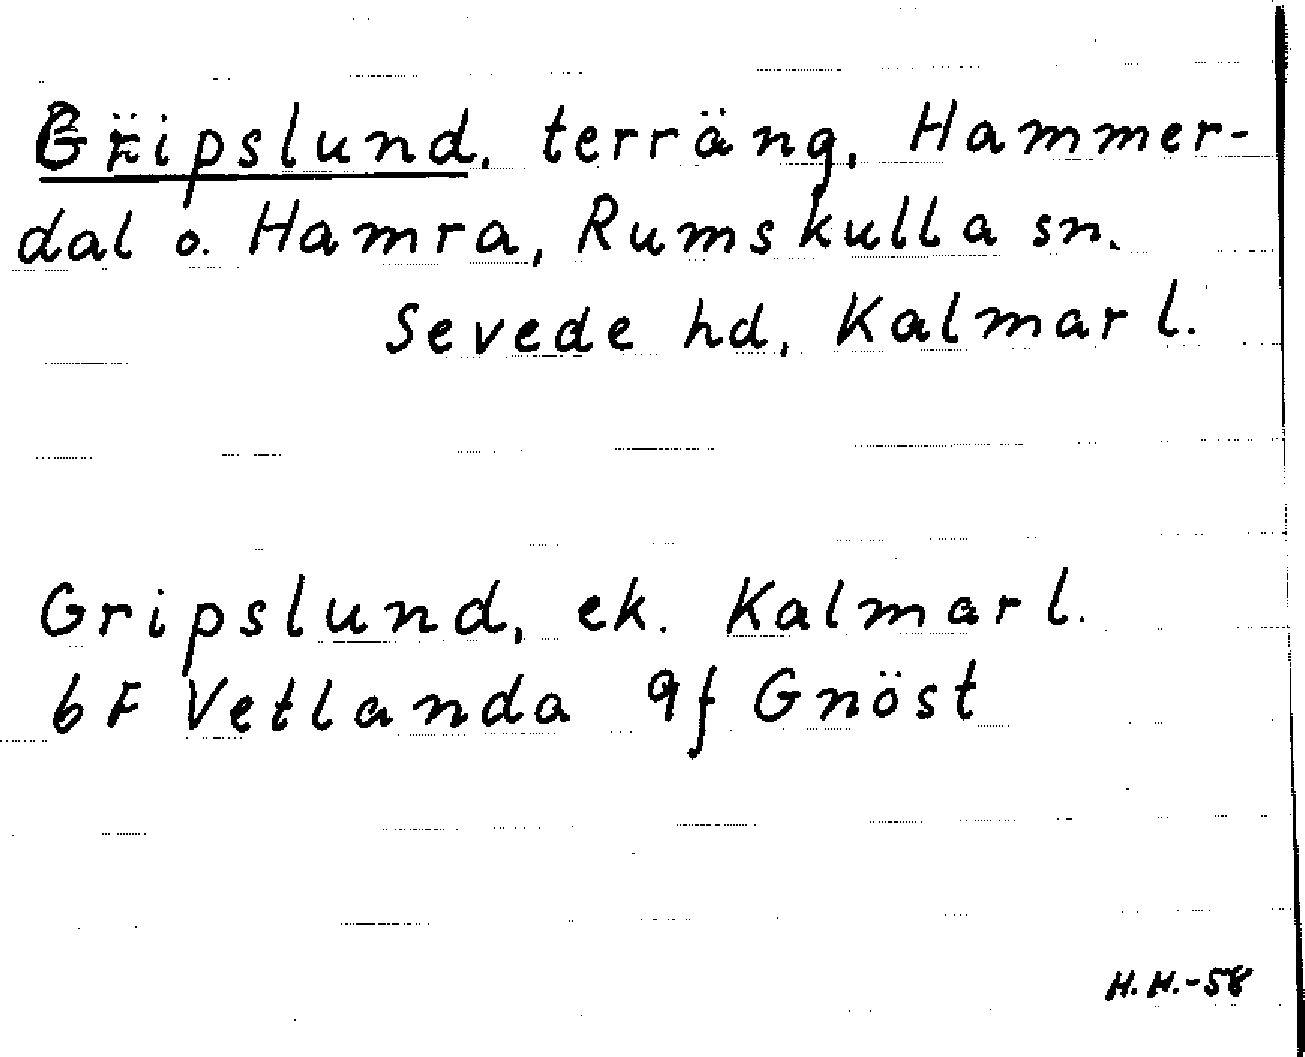 Gripslund, terräng, Hammer-
dal o. Hamra, Rumskulla sn.
Sevede hd, Kalmar l.
Gripslund, ek. Kalmar l.
6F Vetlanda 9f Gnöst
H.H.-58